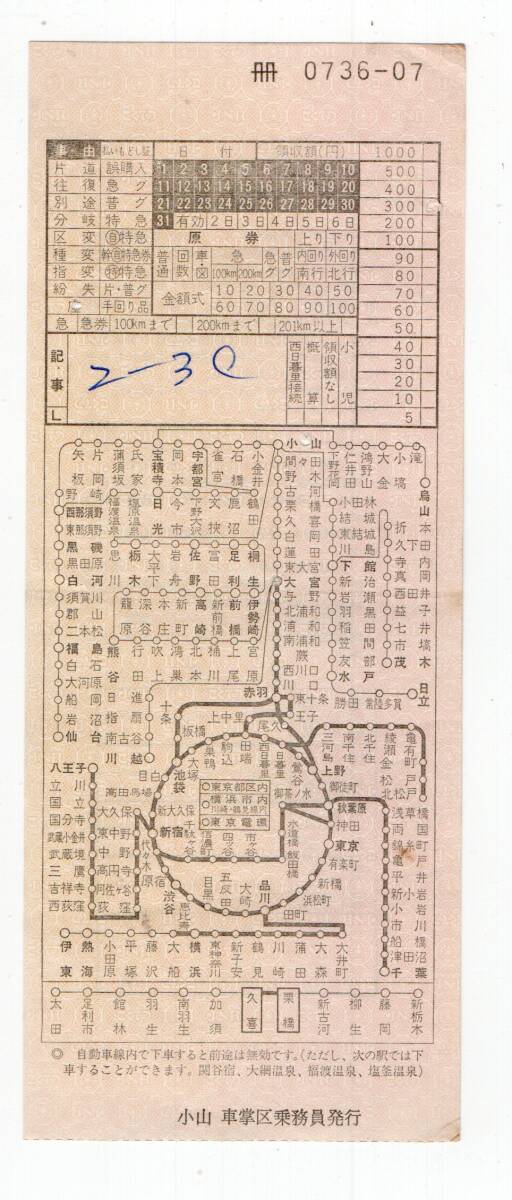 冊 0736-07
事由 払いもどし証 日付 領収額(円) 1000
片道 誤購入 1 2 3 4 5 6 7 8 9 10 500
往復 急グ 11 12 13 14 15 16 17 18 19 20 400
別途 普グ 21 22 23 24 25 26 27 28 29 30 300
分岐 特急 31 有効 2日 3日 4日 5日 6日 200
区変 自特急 原券 上り 下り 100
種変 幹自特急券 普通 回数 車図 急 急普 内回り 外回り 90
指変 特特急 100km 200km ググ 南行 北行 80
紛失 片・普グ 金額式 10 20 30 40 50 70
手回り品 60 70 80 90 100 60
急 急券 100kmまで 200kmまで 201km以上 50
記・事 2-3C 西日暮里接続 概算 領収額なし 小児 40
30
20
10
L 5
矢板 片岡 蒲須坂 氏家 宝積寺 岡本 宇都宮 雀宮 石橋 小金井 小山 下野花岡 仁井田 鴻野山 大金 小塙 滝 烏山
野崎 西那須野 東那須野 黒磯 黒田原 白河 須賀川 郡山 二本松 福島 白石 大河原 船岡 岩沼 仙台
福渡温泉 塩原温泉 日光 今市 下野大沢 文挾 鹿沼 鶴田
思川 栃木 大平下 岩舟 佐野 富田 足利 桐生
籠原 深谷 本庄 新町 高崎 新前橋 前橋 伊勢崎
熊谷 行田 吹上 鴻巣 北本 桶川 上尾 宮原
日進 指扇 南古谷 川越
間々田 野木 古河 栗橋 久喜 白岡 蓮田 東大宮 大宮 与野 北浦和 浦和 南浦和 蕨 西川口 川口 赤羽
小田林 結城 東結城 川島 下館 新治 岩瀬 羽黒 稲田 笠間 友部 水戸
折本 久下田 寺内 真岡 西田井 益子 七井 市塙 茂木
勝田 常陸多賀 日立
東十条 王子 上中里 尾久 十条 板橋
三河島 南千住 北千住 綾瀬 亀有 金町 松戸 北松戸
巣鴨 駒込 田端 西日暮里 日暮里 鶯谷 上野 御徒町 秋葉原 神田 東京 有楽町 新橋 浜松町 田町 品川 大崎 五反田 目黒 恵比寿 渋谷 原宿 代々木 新宿 新大久保 高田馬場 目白 池袋
東京都区内
横浜市内
川崎・鶴見線内
東京電環
御茶ノ水 水道橋 飯田橋 市ヶ谷 四ッ谷 信濃町 千駄ヶ谷
八王子 立川 国立 国分寺 武蔵小金井 武蔵境 三鷹 吉祥寺 西荻窪 荻窪 阿佐ヶ谷 高円寺 中野 東中野 大久保
浅草橋 両国 錦糸町 亀戸 平井 新小岩 小岩 市川 船橋 津田沼 千葉
伊東 熱海 小田原 平塚 藤沢 大船 横浜 東神奈川 新子安 鶴見 川崎 蒲田 大森 大井町
太田 足利市 館林 羽生 南羽生 加須 久喜 栗橋 新古河 柳生 藤岡 新栃木
◎ 自動車線内で下車すると前途は無効です。(ただし、次の駅では下
車することができます。関谷宿、大網温泉、福渡温泉、塩釜温泉)
小山 車掌区乗務員発行